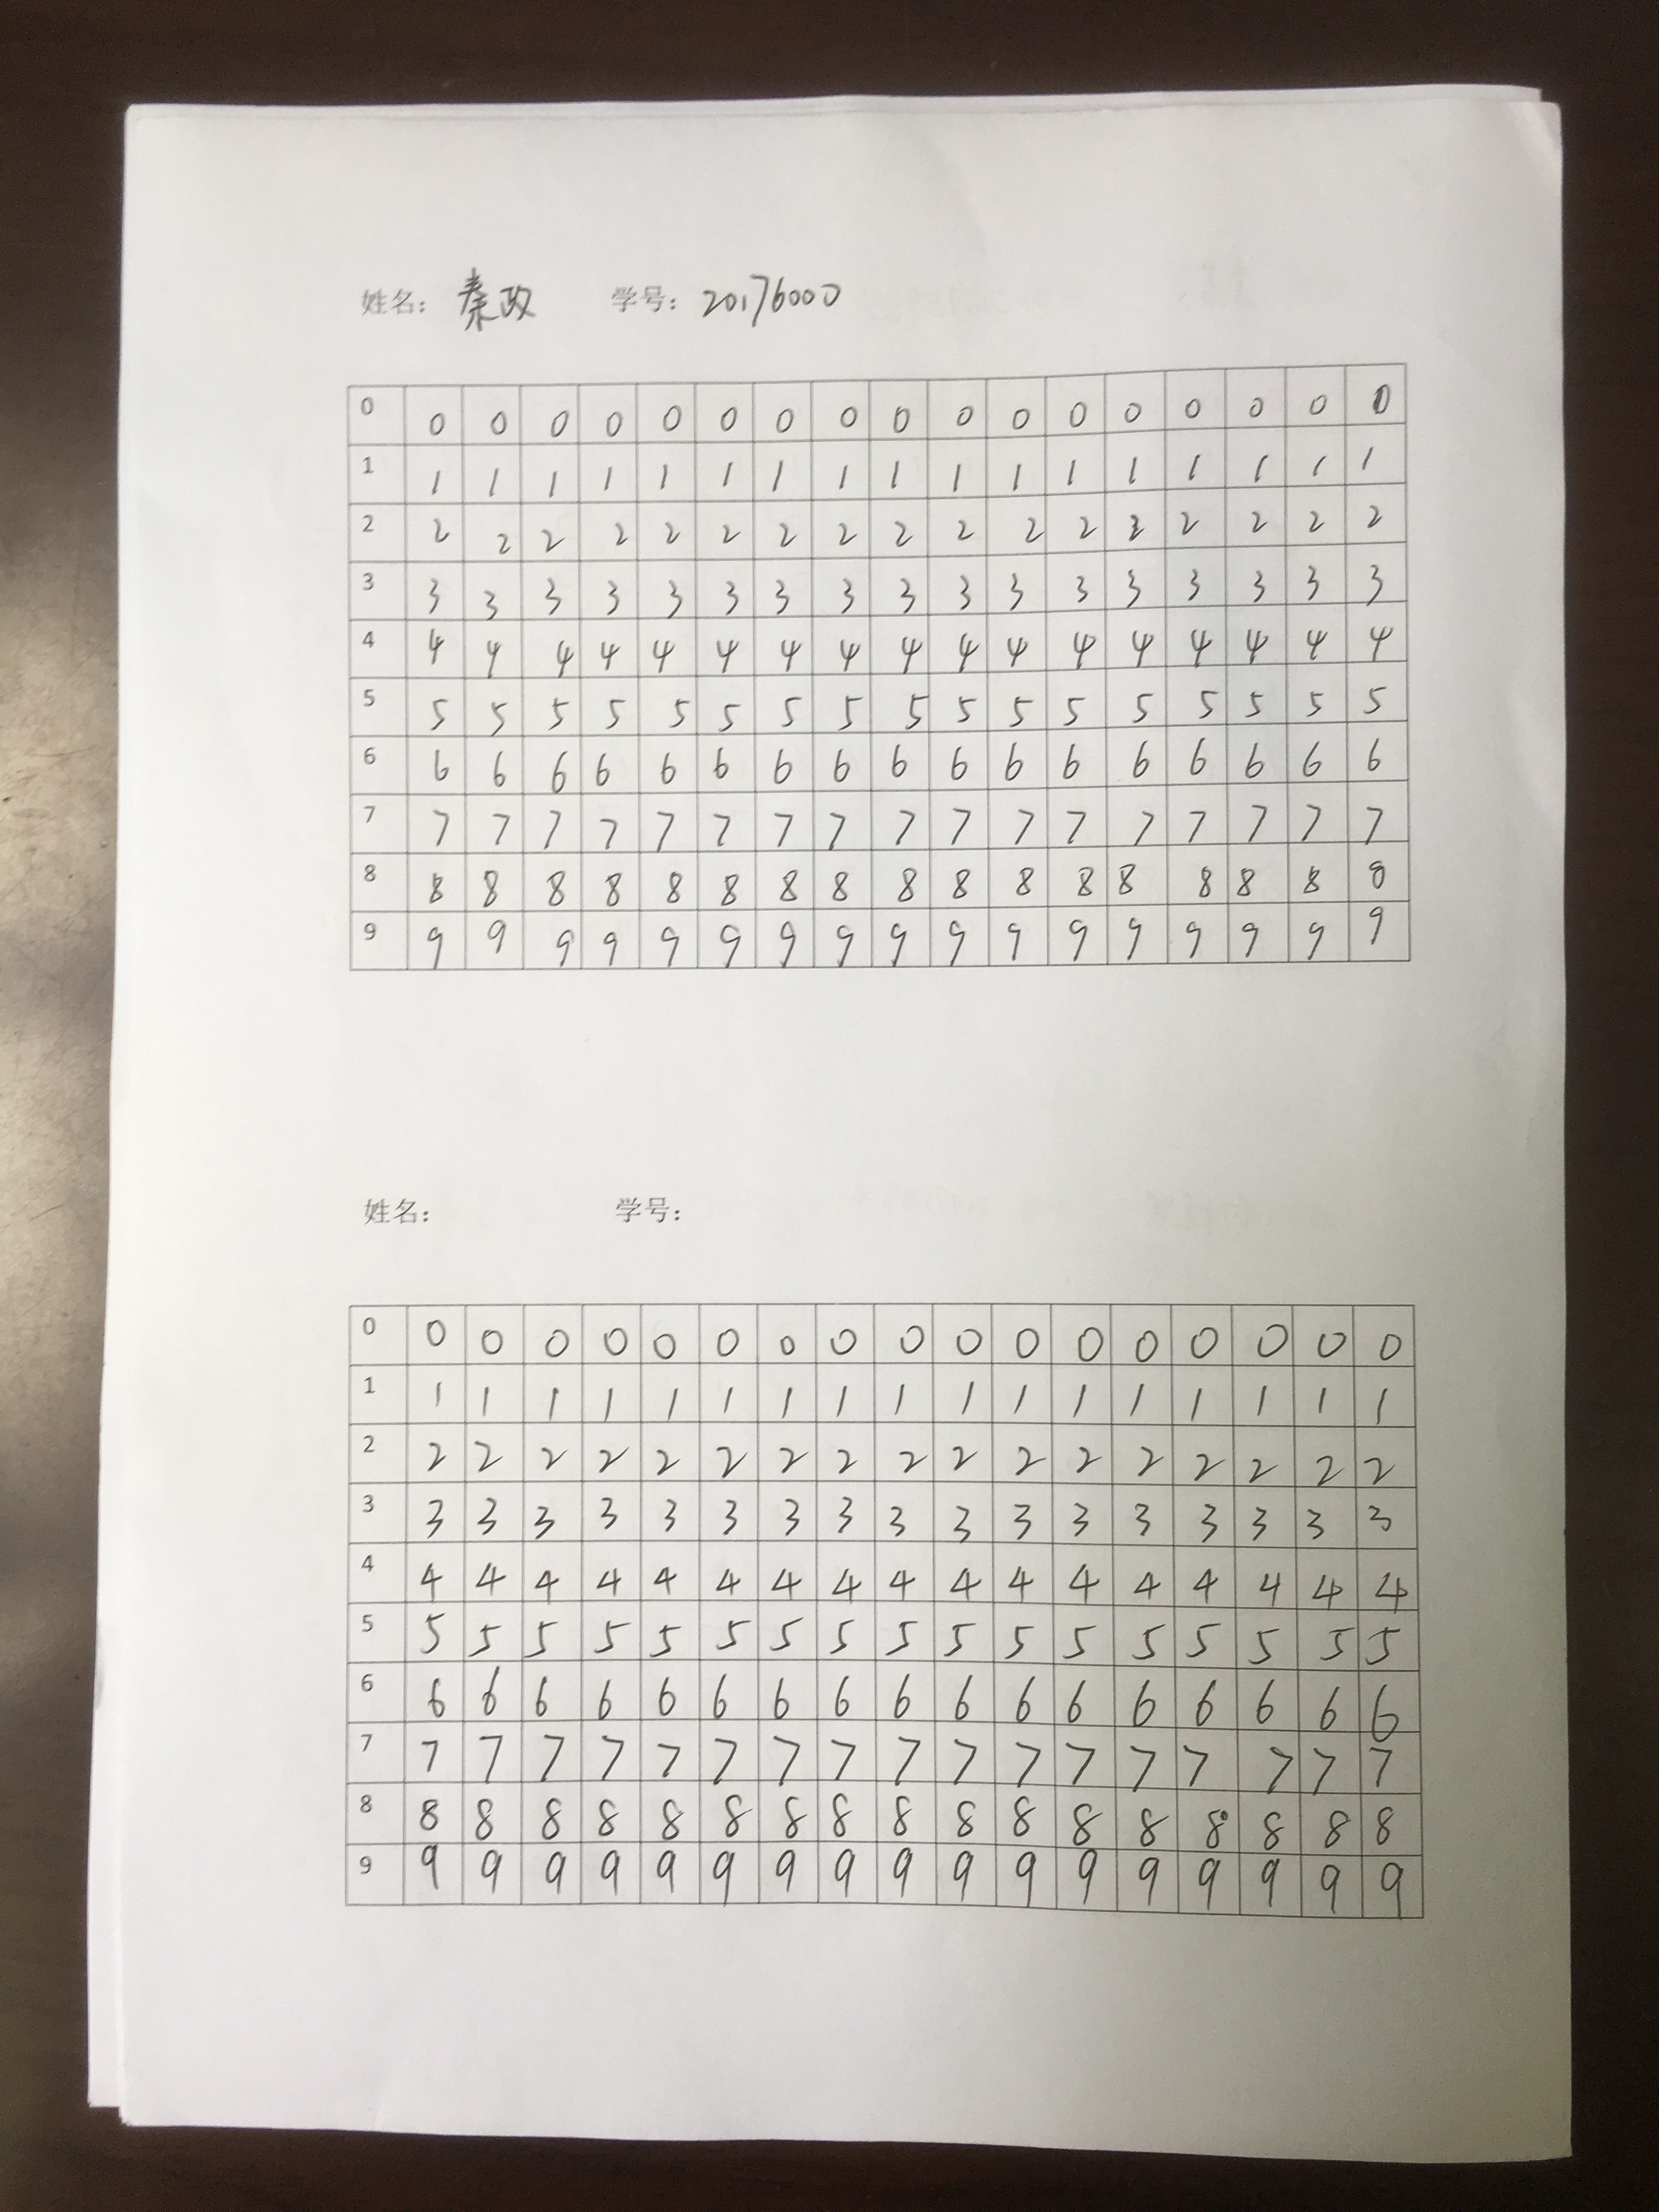 姓名： 秦政 学号： 20176000
0 0 0 0 0 0 0 0 0 0 0 0 0 0 0 0 0 0
1 1 1 1 1 1 1 1 1 1 1 1 1 1 1 1 1 1
2 2 2 2 2 2 2 2 2 2 2 2 2 2 2 2 2 2
3 3 3 3 3 3 3 3 3 3 3 3 3 3 3 3 3 3
4 4 4 4 4 4 4 4 4 4 4 4 4 4 4 4 4 4
5 5 5 5 5 5 5 5 5 5 5 5 5 5 5 5 5 5
6 6 6 6 6 6 6 6 6 6 6 6 6 6 6 6 6 6
7 7 7 7 7 7 7 7 7 7 7 7 7 7 7 7 7 7
8 8 8 8 8 8 8 8 8 8 8 8 8 8 8 8 8 8
9 9 9 9 9 9 9 9 9 9 9 9 9 9 9 9 9 9
姓名： 学号：
0 0 0 0 0 0 0 0 0 0 0 0 0 0 0 0 0 0
1 1 1 1 1 1 1 1 1 1 1 1 1 1 1 1 1 1
2 2 2 2 2 2 2 2 2 2 2 2 2 2 2 2 2 2
3 3 3 3 3 3 3 3 3 3 3 3 3 3 3 3 3 3
4 4 4 4 4 4 4 4 4 4 4 4 4 4 4 4 4 4
5 5 5 5 5 5 5 5 5 5 5 5 5 5 5 5 5 5
6 6 6 6 6 6 6 6 6 6 6 6 6 6 6 6 6 6
7 7 7 7 7 7 7 7 7 7 7 7 7 7 7 7 7 7
8 8 8 8 8 8 8 8 8 8 8 8 8 8 8 8 8 8
9 9 9 9 9 9 9 9 9 9 9 9 9 9 9 9 9 9